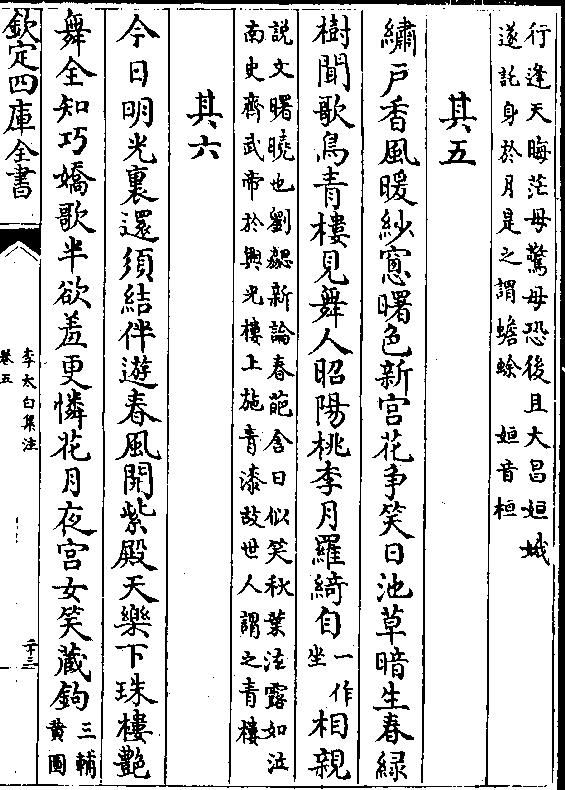 行逢天晦茫毋驚毋恐後且大昌姮娥
遂託身於月是之謂蟾蜍　姮音桓
其五
繡戶香風暖紗窻曙色新宮花爭笑日池草暗生春緑
樹聞歌鳥青樓見舞人昭陽桃李月羅綺自一作坐相親
説文曙曉也劉勰新論春葩含日似笑秋葉泫露如泣
南史齊武帝於興光樓上施青漆故世人謂之青樓
其六
今日明光裏還須結伴遊春風開紫殿天樂下珠樓艷
舞全知巧嬌歌半欲羞更憐花月夜宮女笑藏鉤三輔黄圖
欽定四庫全書
李太白集注
卷五
二十三